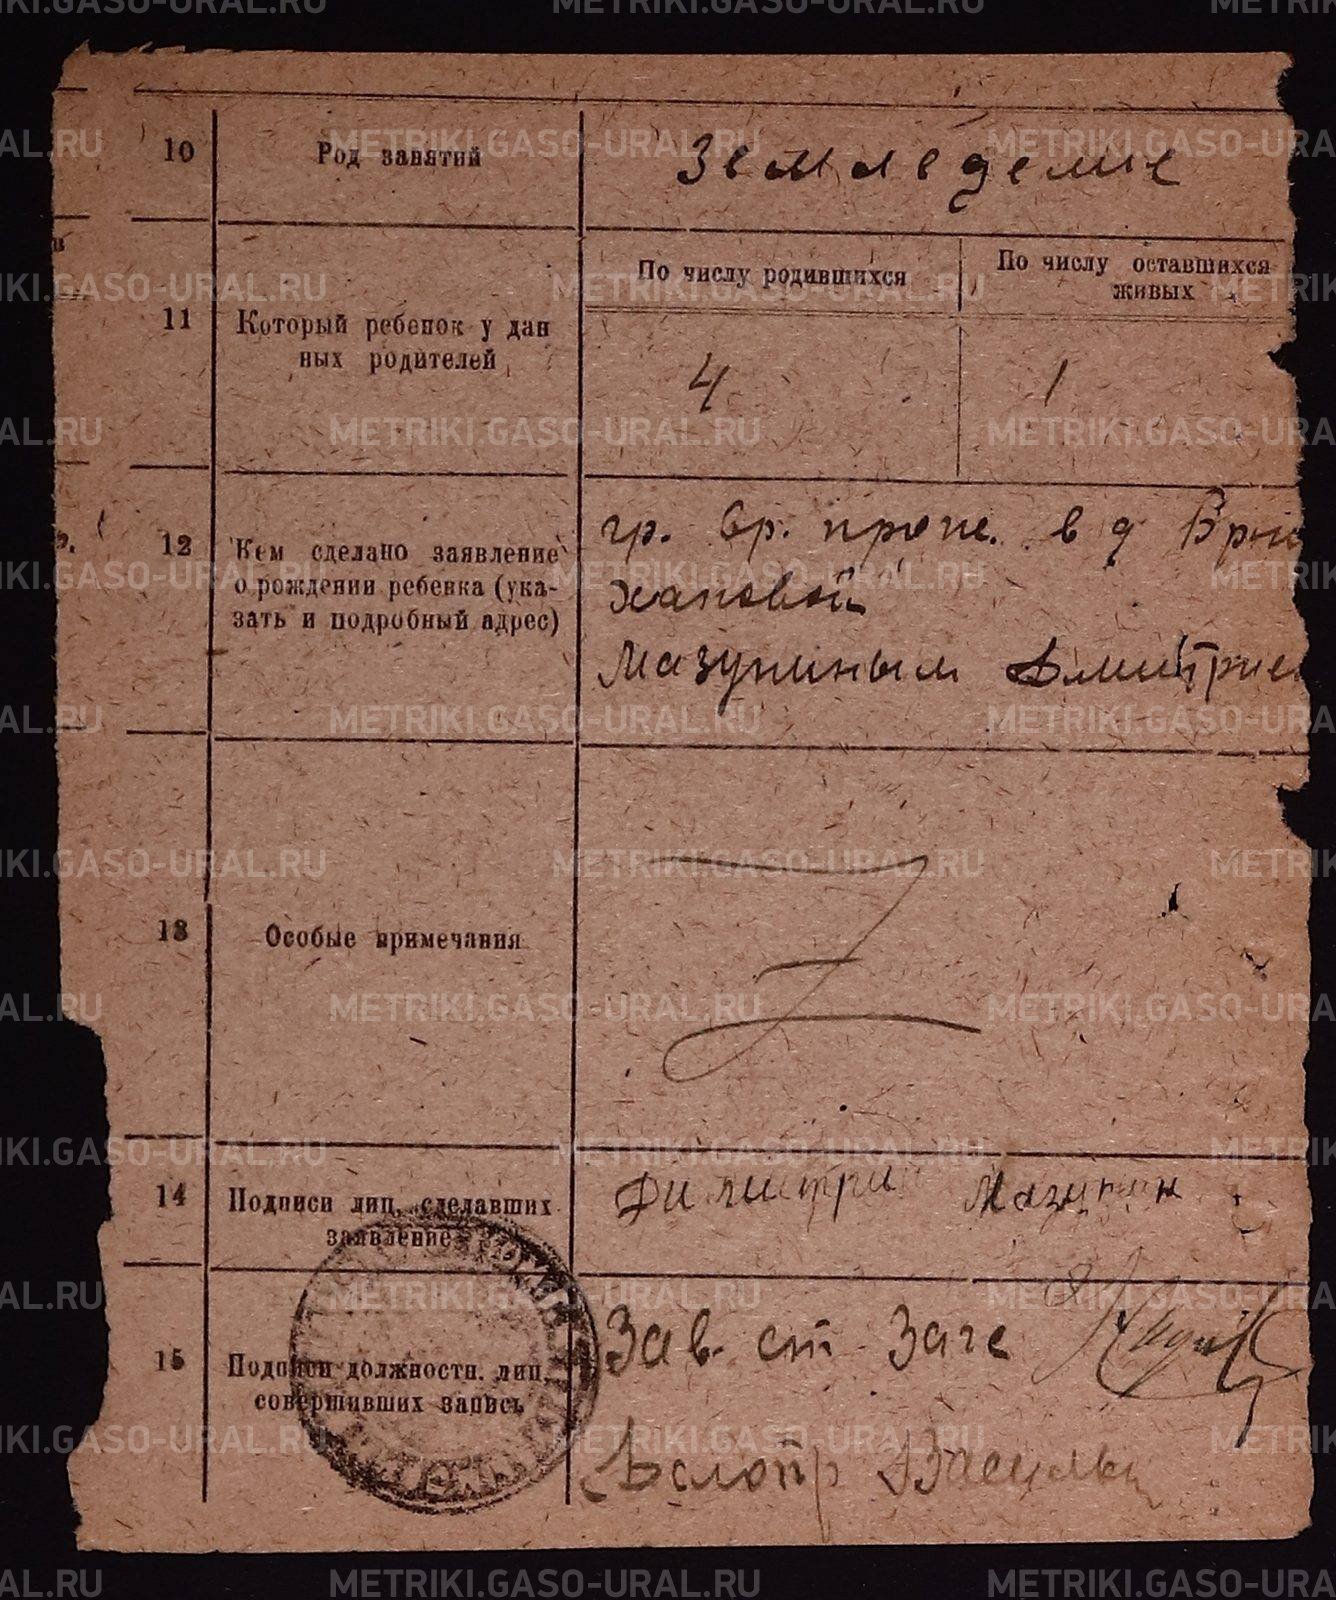 10 Род занятий Земледелие
По числу родившихся По числу оставшихся
живых
11 Который ребенок у дан
ных родителей
4 1
12 Кем сделано заявление
о рождении ребенка (ука-
зать и подробный адрес)
гр. вр. прож. в д Брю
хановой
Мазуниным Дмитрие
13 Особые примечания
14 Подписи лиц, сделавших
заявление
Димитри Мазунин
15 Подписи должностн. лиц,
совершивших запись
Зав. ст Загс
Делопр
METRIKI.GASO-URAL.RU